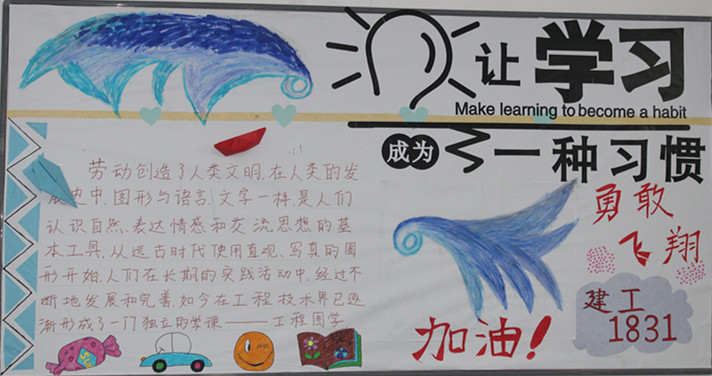 让学习
Make learning to become a habit
成为一种习惯
劳动创造了人类文明,在人类的发
展史中,图形与语言、文字一样,是人们
认识自然、表达情感和交流思想的基
本工具,从远古时代使用直观、写真的图
形开始,人们在长期的实践活动中,经过不
断地发展和完善,如今在工程技术界已逐
渐形成了一门独立的学课——工程图学
勇敢
飞翔
加油!
建工
1831